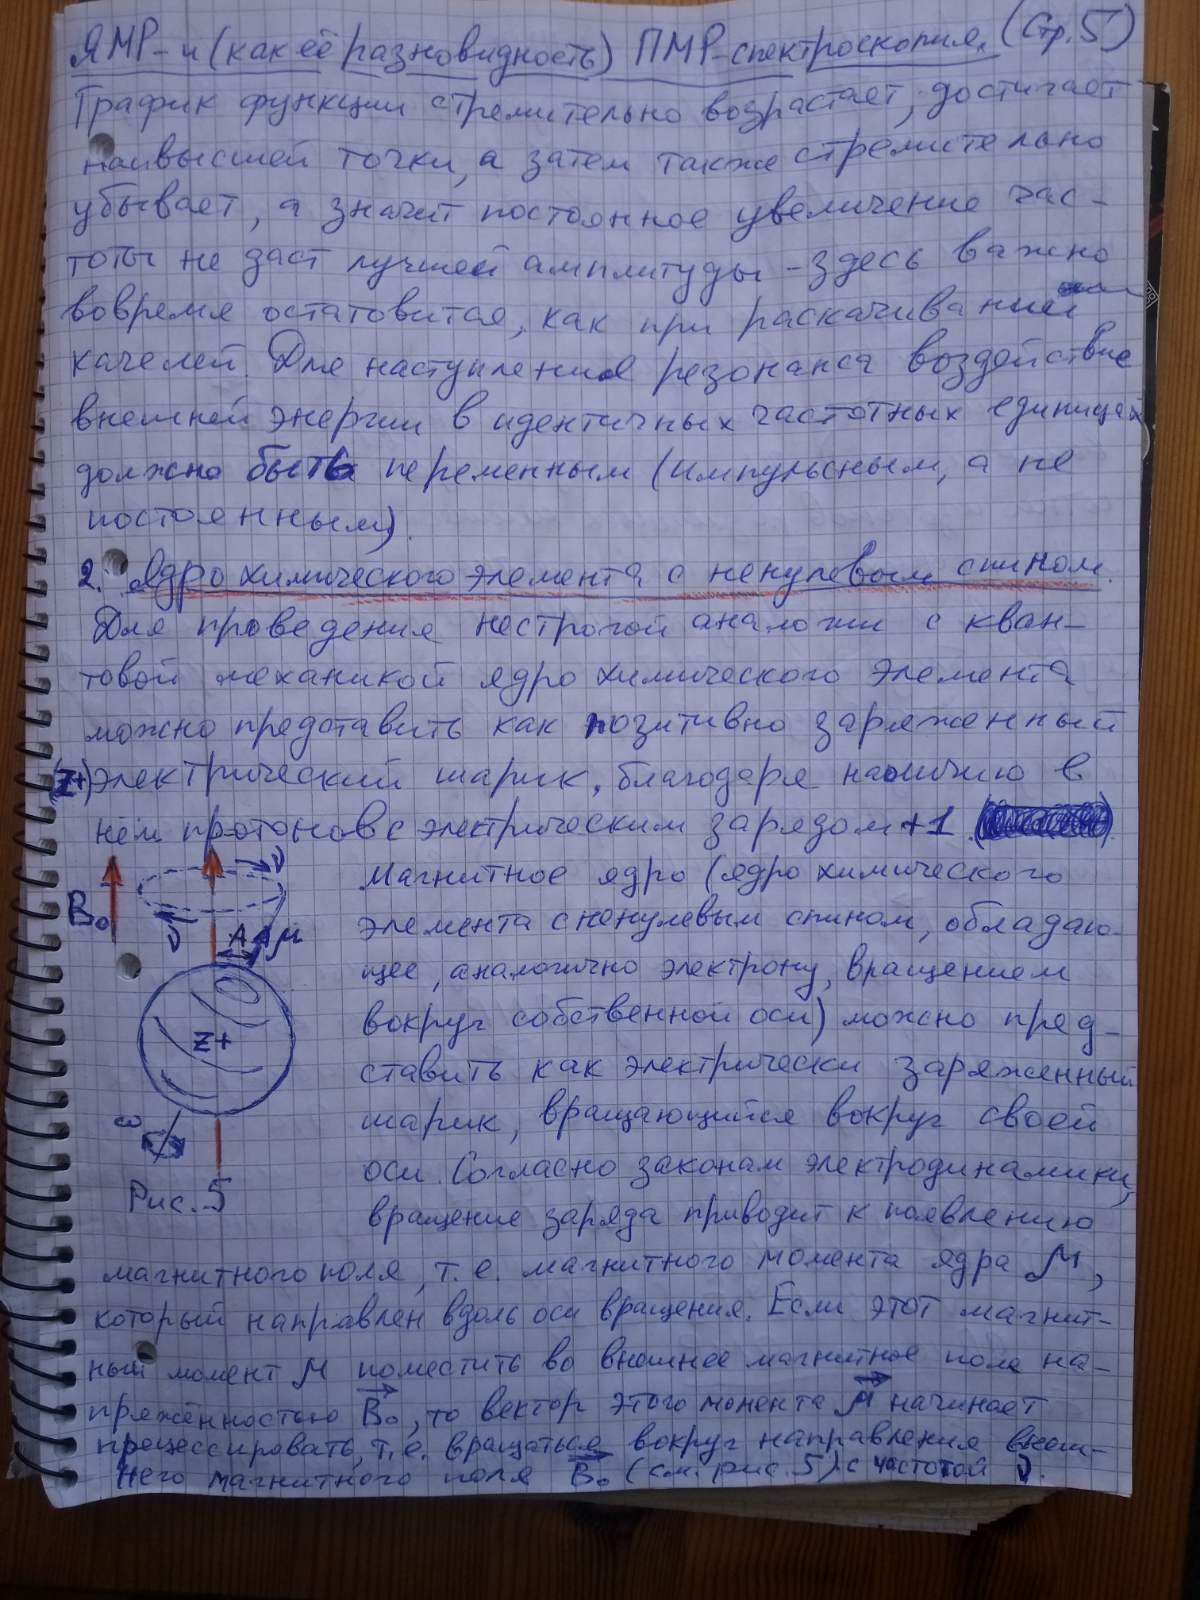 ЯМР- и (как её разновидность) ПМР-спектроскопия. (Стр. 5)
График функции стремительно возрастает, достигает
наивысшей точки, а затем также стремительно
убывает, а значит постоянное увеличение час-
тоты не даст лучшей амплитуды - здесь важно
вовремя остановится, как при раскачивании
качелей. Для наступления резонанса воздействие
внешней энергии в идентичных частотных единицах
должно быть переменным (импульсным, а не
постоянным).
2. Ядро химического элемента с ненулевым спином.
Для проведения нестрогой аналогии с кван-
товой механикой ядро химического элемента
можно представить как позитивно заряженный
(Z+) электрический шарик, благодаря наличию в
нём протонов с электрическим зарядом +1.
Магнитное ядро (ядро химического
элемента с ненулевым спином, обладаю-
щее, аналогично электрону, вращением
вокруг собственной оси) можно пред-
ставить как электрически заряженный
шарик, вращающийся вокруг своей
оси. Согласно законам электродинамики,
вращение заряда приводит к появлению
B₀
ν
ν
A
μ
Z+
ω
Рис. 5
магнитного поля, т.е. магнитного момента ядра μ,
который направлен вдоль оси вращения. Если этот магнит-
ный момент μ поместить во внешнее магнитное поле на-
пряжённостью B₀, то вектор этого момента μ начинает
прецессировать, т.е. вращаться вокруг направления внеш-
него магнитного поля B₀ (см. рис. 5) с частотой ν.